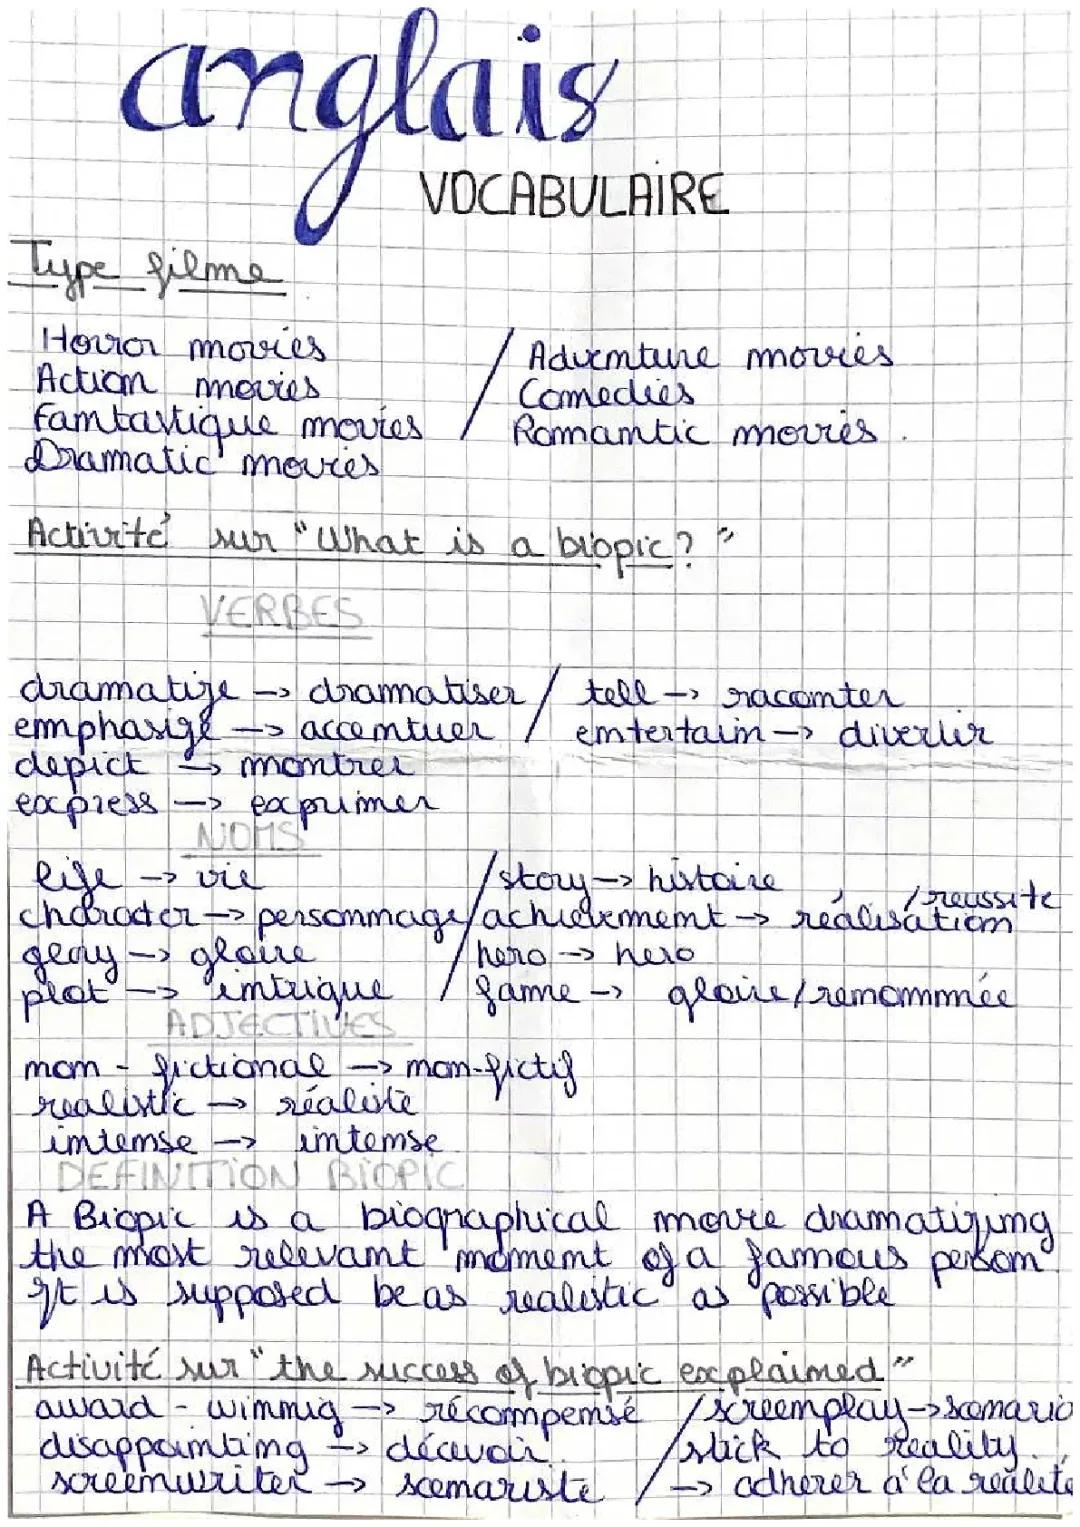 anglais
VOCABULAIRE
Type filme
Horror movies / Adventure movies
Action movies Comedies
fantastique movies / Romantic movies.
Dramatic movies
Activité sur "What is a biopic?"
VERBES
dramatize → dramatiser / tell → raconter
emphasize → accentuer / entertain → divertir
depict → montrer
express → exprimer
NOMS
life → vie / story → histoire
character → personnage / achievement → réalisation / réussite
glory → gloire / hero → hero
plot → intrigue / fame → gloire / renommée
ADJECTIVES
non-fictional → non-fictif
realistic → réaliste
intense → intense
DEFINITION BIOPIC
A Biopic is a biographical movie dramatizing
the most relevant moment of a famous person.
It is supposed be as realistic as possible
Activité sur "the success of biopic explained"
award-winnig → récompensé / screenplay → scénario
disappointing → décevoir. / stick to reality.
screenwriter → scénariste / → adhérer à la réalité